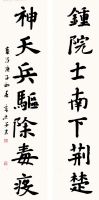 鍾院士南下荆楚
神天兵驅除毒疫